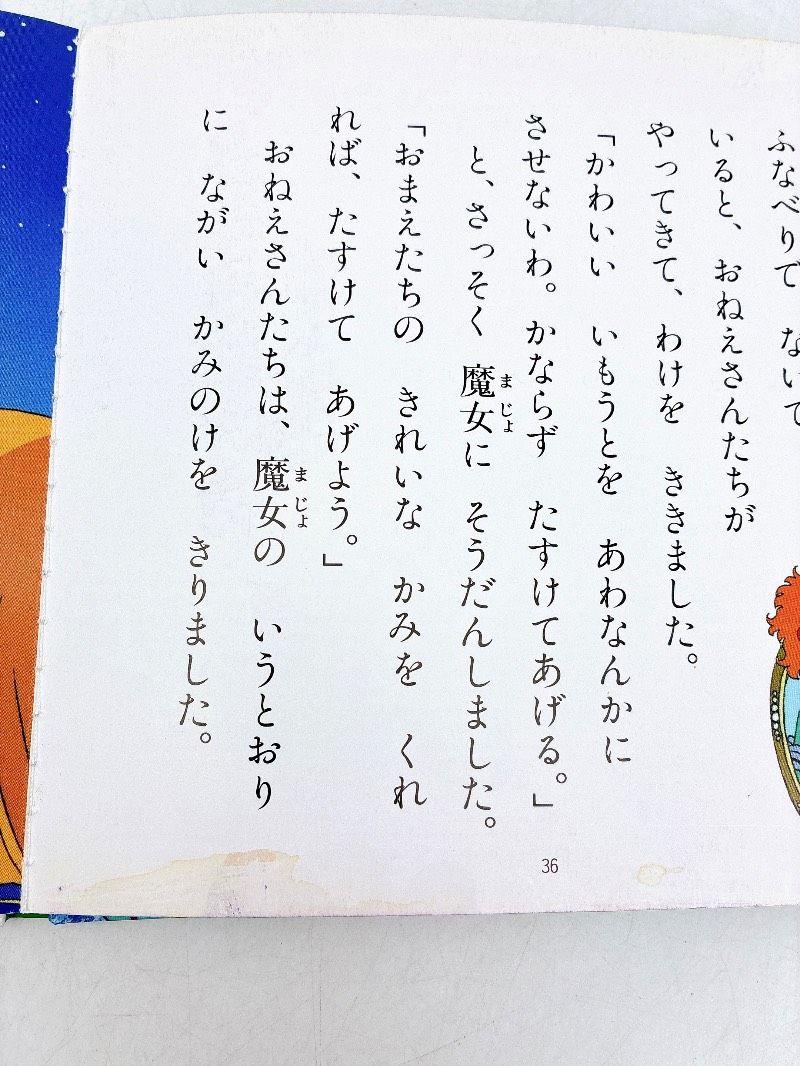 ふなべりで ないて
いると、おねえさんたちが
やってきて、わけを ききました。
「かわいい いもうとを あわなんかに
させないわ。かならず たすけてあげる。」
と、さっそく 魔女に そうだんしました。
まじょ
「おまえたちの きれいな かみを くれ
れば、たすけて あげよう。」
おねえさんたちは、魔女の いうとおり
まじょ
に ながい かみのけを きりました。
36